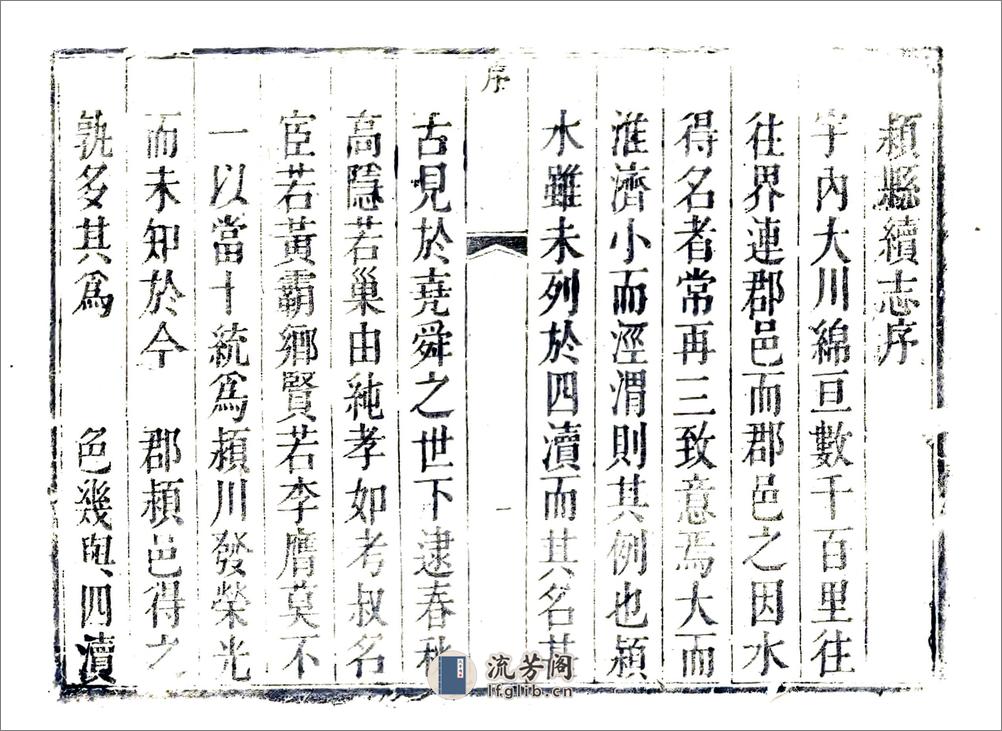 潁縣續志序
宇內大川綿亘數千百里往
往界連郡邑而郡邑之因水
得名者常再三致意焉大而
淮濟小而涇渭則其例也潁
水雖未列於四瀆而其名甚
序
一
古見於堯舜之世下逮春秋
高隱若巢由純孝如考叔名
宦若黃霸鄉賢若李膺莫不
一以當十統爲潁川發榮光
而未知於今　郡潁邑得之
孰多其爲　　色幾與四瀆
流芳阁
lfglib.cn